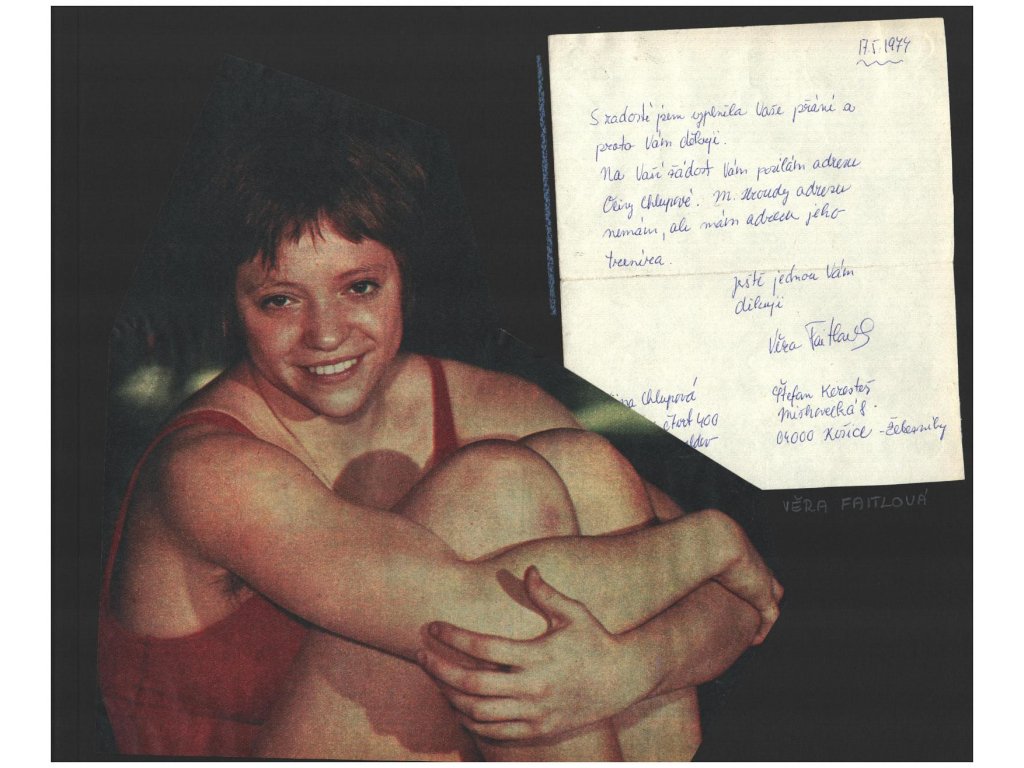 17.5.1974
S radostí jsem vyplnila Vaše přání a
proto Vám děkuji.
Na Vaší žádost Vám posílám adresu
Chlupové. M. Kroudy adresu
nemám, ale mám adresu jeho
trenéra.
ještě jednou Vám
děkuji
Věra Faitlová
Chlupová
čtvrť 400
Štefan Keresteš
Miskovecká 8.
04000 Košice - Železníky
VĚRA FAITLOVÁ